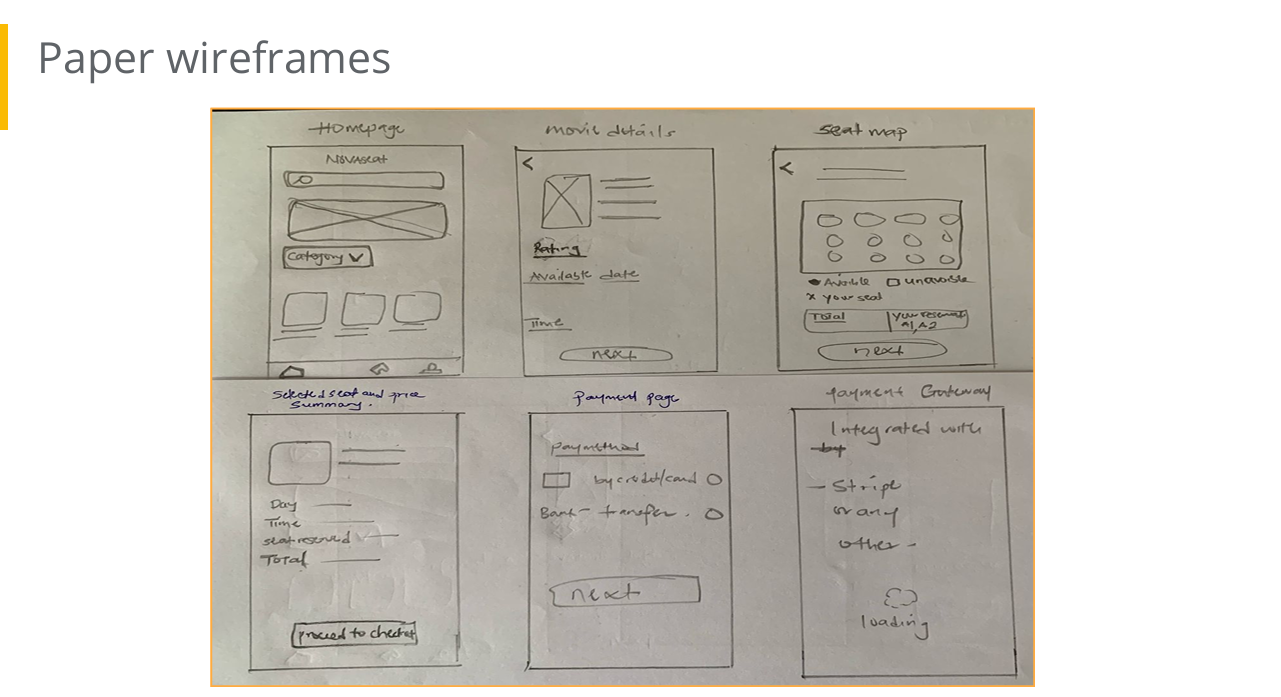 Paper wireframes
Homepage
Novaseat
Category
movie details
Rating
Available date
Time
next
seat map
Unavaible
x your seat
Total
A1, A2
next
Selected seat and price
Summary.
Day
Time
seat reserved
Total
proceed to
Payment page
paymethod
by credit/card
Bank - transfer.
next
payment Gateway
Integrated with
by
- Stripe
or any
other -
loading